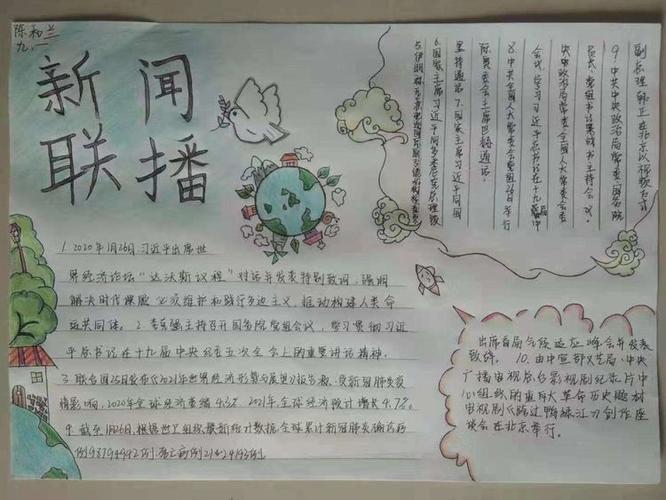 陈和兰
九.一
新闻
联播
1.2020年1月26日习近平出席世
界经济论坛“达沃斯议程”对话并发表特别致词,强调
解决时代课题 必须维护和践行多边主义,推动构建人类命
运共同体。2.李克强主持召开国务院党组会议,学习贯彻习近
平总书记在十九届中央纪委五次全会上的重要讲话精神.
3.联合国25日发布《2021年世界经济形势与展望》报告称,受新冠肺炎疫
情影响,2020年全球经济萎缩4.3%.2021年,全球经济预计增长4.7%.
4.截至1月26日,根据世卫组织最新统计数据,全球累计新冠肺炎确诊病
例
6.国家主席习近平同
里通电话 7.国家主席习近平同
席 主席 通话.
8.中共全国人大常委会党组26日举行
会议,学习习近平总书记在十九届中
央政治局常委全国人大常委会委
员长、党组书记栗战书主持会议.
9.中共中央政治局常委国务院
副总理韩正在北京以视频方式
出席 峰会并发表
致辞. 10.由中宣部文艺局,中央
广播电视总台影视剧纪录片中
心组织的重大革命历史题材
电视剧《跨过鸭绿江》创作座
谈会在北京举行。